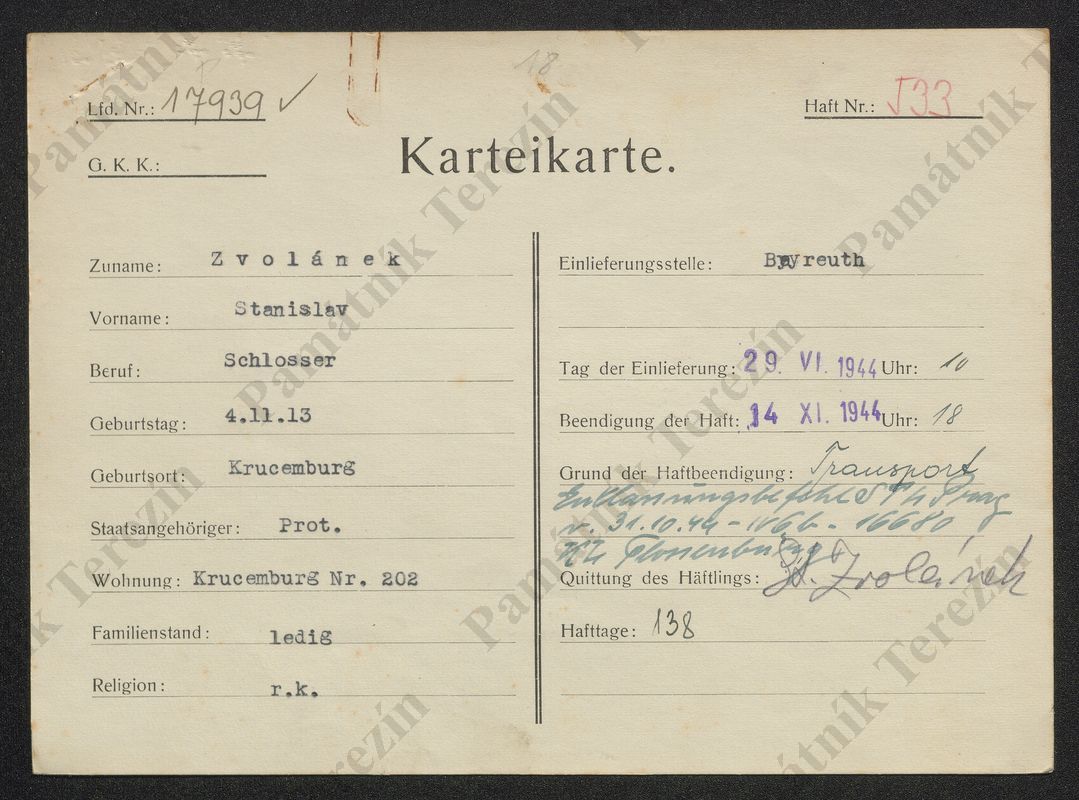 18
Lfd. Nr.: 17939 ✓
Haft Nr.: J33
G. K. K.:
Karteikarte.
Zuname: Zvolánek
Vorname: Stanislav
Beruf: Schlosser
Geburtstag: 4.11.13
Geburtsort: Krucemburg
Staatsangehöriger: Prot.
Wohnung: Krucemburg Nr. 202
Familienstand: ledig
Religion: r.k.
Einlieferungsstelle: Bayreuth
Tag der Einlieferung: 29. VI. 1944 Uhr: 10
Beendigung der Haft: 14 XI. 1944 Uhr: 18
Grund der Haftbeendigung: Transport
Prag
v. 31.10.44 - 16680
KZ Flossenbürg
Quittung des Häftlings: St. Zvolánek
Hafttage: 138
Památník Terezín